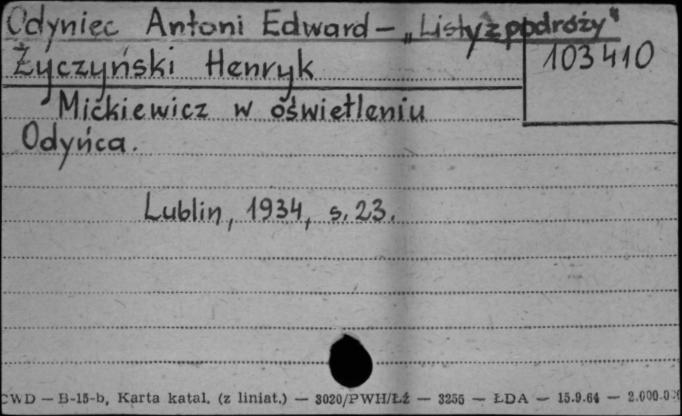 Odyniec Antoni Edward – „Listy z podróży"
Życzyński Henryk
103410
Mickiewicz w oświetleniu
Odyńca.
Lublin, 1934, s. 23.
CWD — B-15-b, Karta katal. (z liniat.) — 3020/PWH/ŁŹ — 3255 — ŁDA — 15.9.64 — 2.000.0